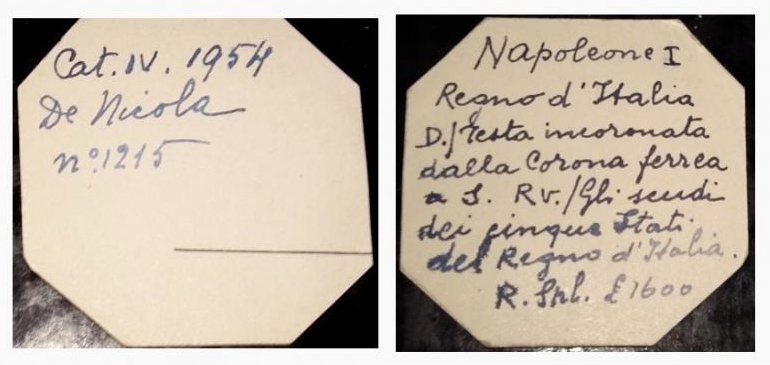 Cat. IV. 1954
De Nicola
n.º 1215
Napoleone I
Regno d'Italia
D./Testa incoronata
dalla Corona ferrea
a S. Rv./Gli scudi
dei cinque Stati
del Regno d'Italia.
R. Spl. £1600